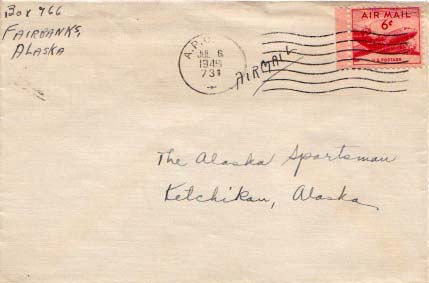 Box 466
FAIRBANKS,
ALASKA
A.P.O.
JUL 6
1945
731
AIRMAIL
AIR MAIL
6¢
U.S. POSTAGE
The Alaska Sportsman
Ketchikan, Alaska